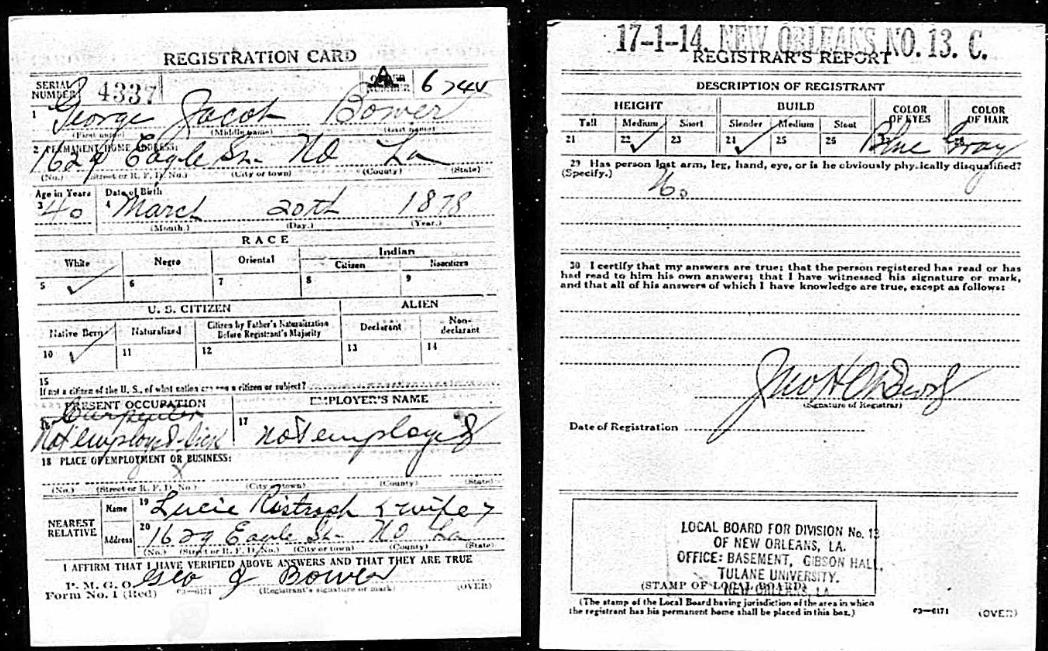 REGISTRATION CARD
SERIAL NUMBER 4337 ORDER NUMBER A 6244
1 George Jacob Bower
(First name) (Middle name) (Last name)
2 PERMANENT HOME ADDRESS:
1629 Eagle St. NO La
(No.) (Street or R. F. D. No.) (City or town) (County) (State)
Age in Years Date of Birth
3 40 4 March 20th 1878
(Month.) (Day.) (Year.)
RACE
White Negro Oriental Indian
Citizen Noncitizen
5 ✓ 6 7 8 9
U. S. CITIZEN ALIEN
Native Born Naturalized Citizen by Father's Naturalization Before Registrant's Majority Declarant Non-declarant
10 ✓ 11 12 13 14
15
If not a citizen of the U. S., of what nation are you a citizen or subject?
PRESENT OCCUPATION EMPLOYER'S NAME
Carpenter
16 Not employed-Sick 17 not employed
18 PLACE OF EMPLOYMENT OR BUSINESS:
(No.) (Street or R. F. D. No.) (City or town) (County) (State)
NEAREST RELATIVE
Name 19 Lucie Ristroph (wife)
Address 20 1629 Eagle St. NO La
(No.) (Street or R. F. D. No.) (City or town) (County) (State)
I AFFIRM THAT I HAVE VERIFIED ABOVE ANSWERS AND THAT THEY ARE TRUE
P. M. G. O. Geo J Bower
Form No. 1 (Red) 03—6171 (Registrant's signature or mark) (OVER)
17-1-14. NEW ORLEANS NO. 13. C.
REGISTRAR'S REPORT
DESCRIPTION OF REGISTRANT
HEIGHT BUILD COLOR OF EYES COLOR OF HAIR
Tall Medium Short Slender Medium Stout
21 22 ✓ 23 24 ✓ 25 26 Blue Gray
29 Has person lost arm, leg, hand, eye, or is he obviously physically disqualified?
(Specify.) No
30 I certify that my answers are true; that the person registered has read or has
had read to him his own answers; that I have witnessed his signature or mark,
and that all of his answers of which I have knowledge are true, except as follows:
(Signature of Registrar)
Date of Registration
LOCAL BOARD FOR DIVISION No. 13
OF NEW ORLEANS, LA.
OFFICE: BASEMENT, GIBSON HALL,
TULANE UNIVERSITY.
(STAMP OF LOCAL BOARD)
NEW ORLEANS, LA.
(The stamp of the Local Board having jurisdiction of the area in which
the registrant has his permanent home shall be placed in this box.)
03—6171 (OVER)